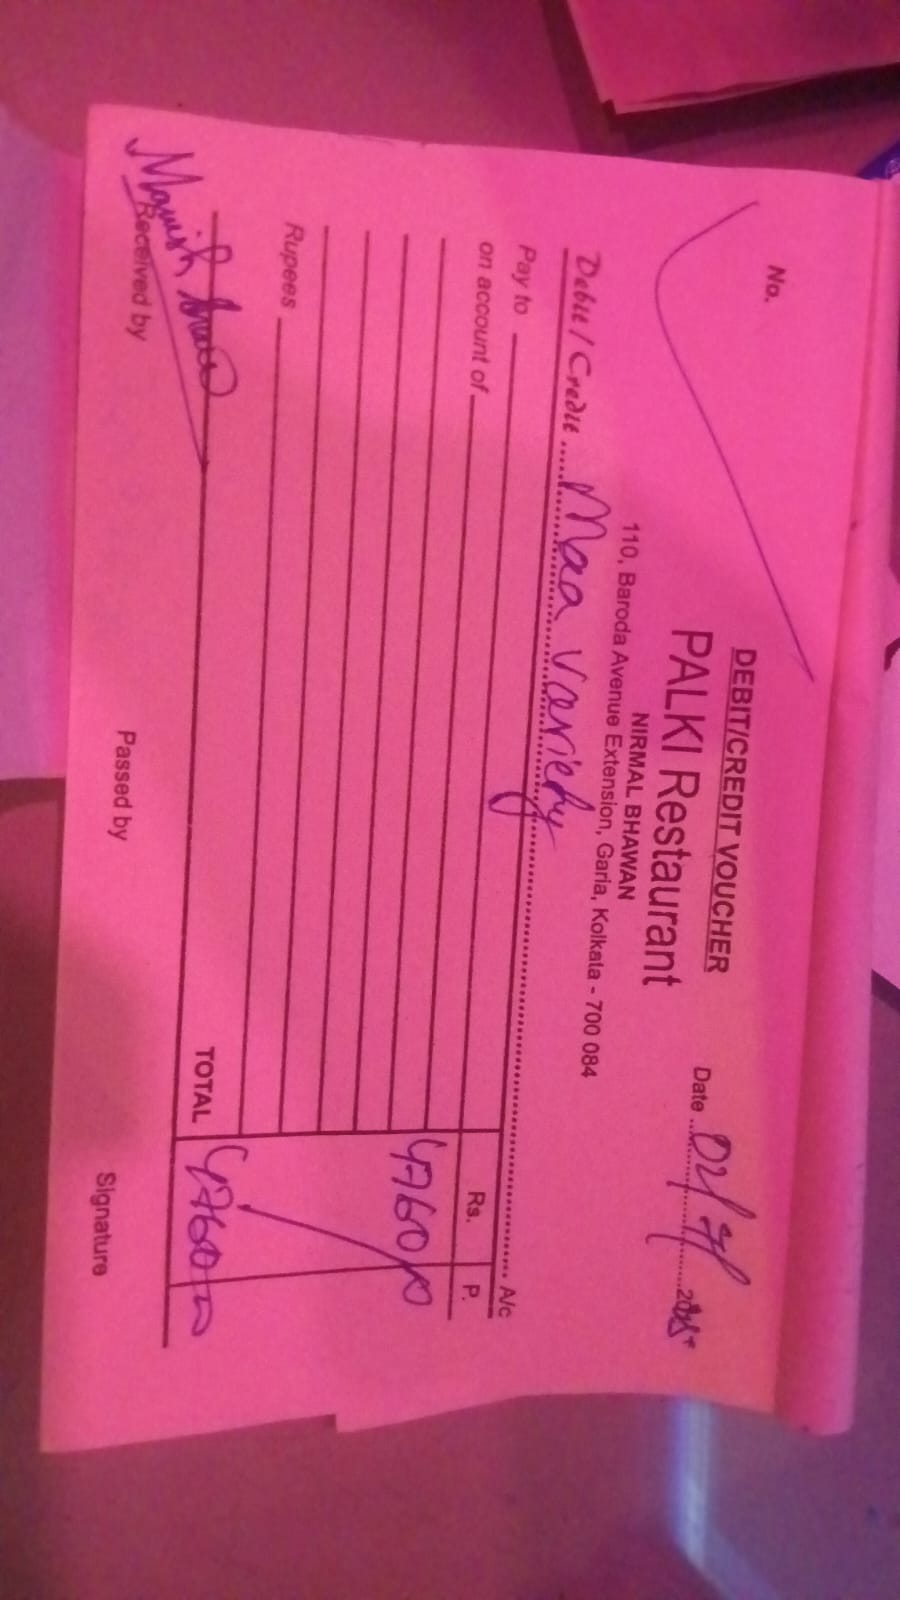 No.
DEBIT/CREDIT VOUCHER
PALKI Restaurant
NIRMAL BHAWAN
110, Baroda Avenue Extension, Garia, Kolkata - 700 084
Date
Debit / Credit Maa Variety A/c
Pay to
on account of
Rs. P.
4760
Rupees
TOTAL 4760
Manish
Received by Passed by Signature